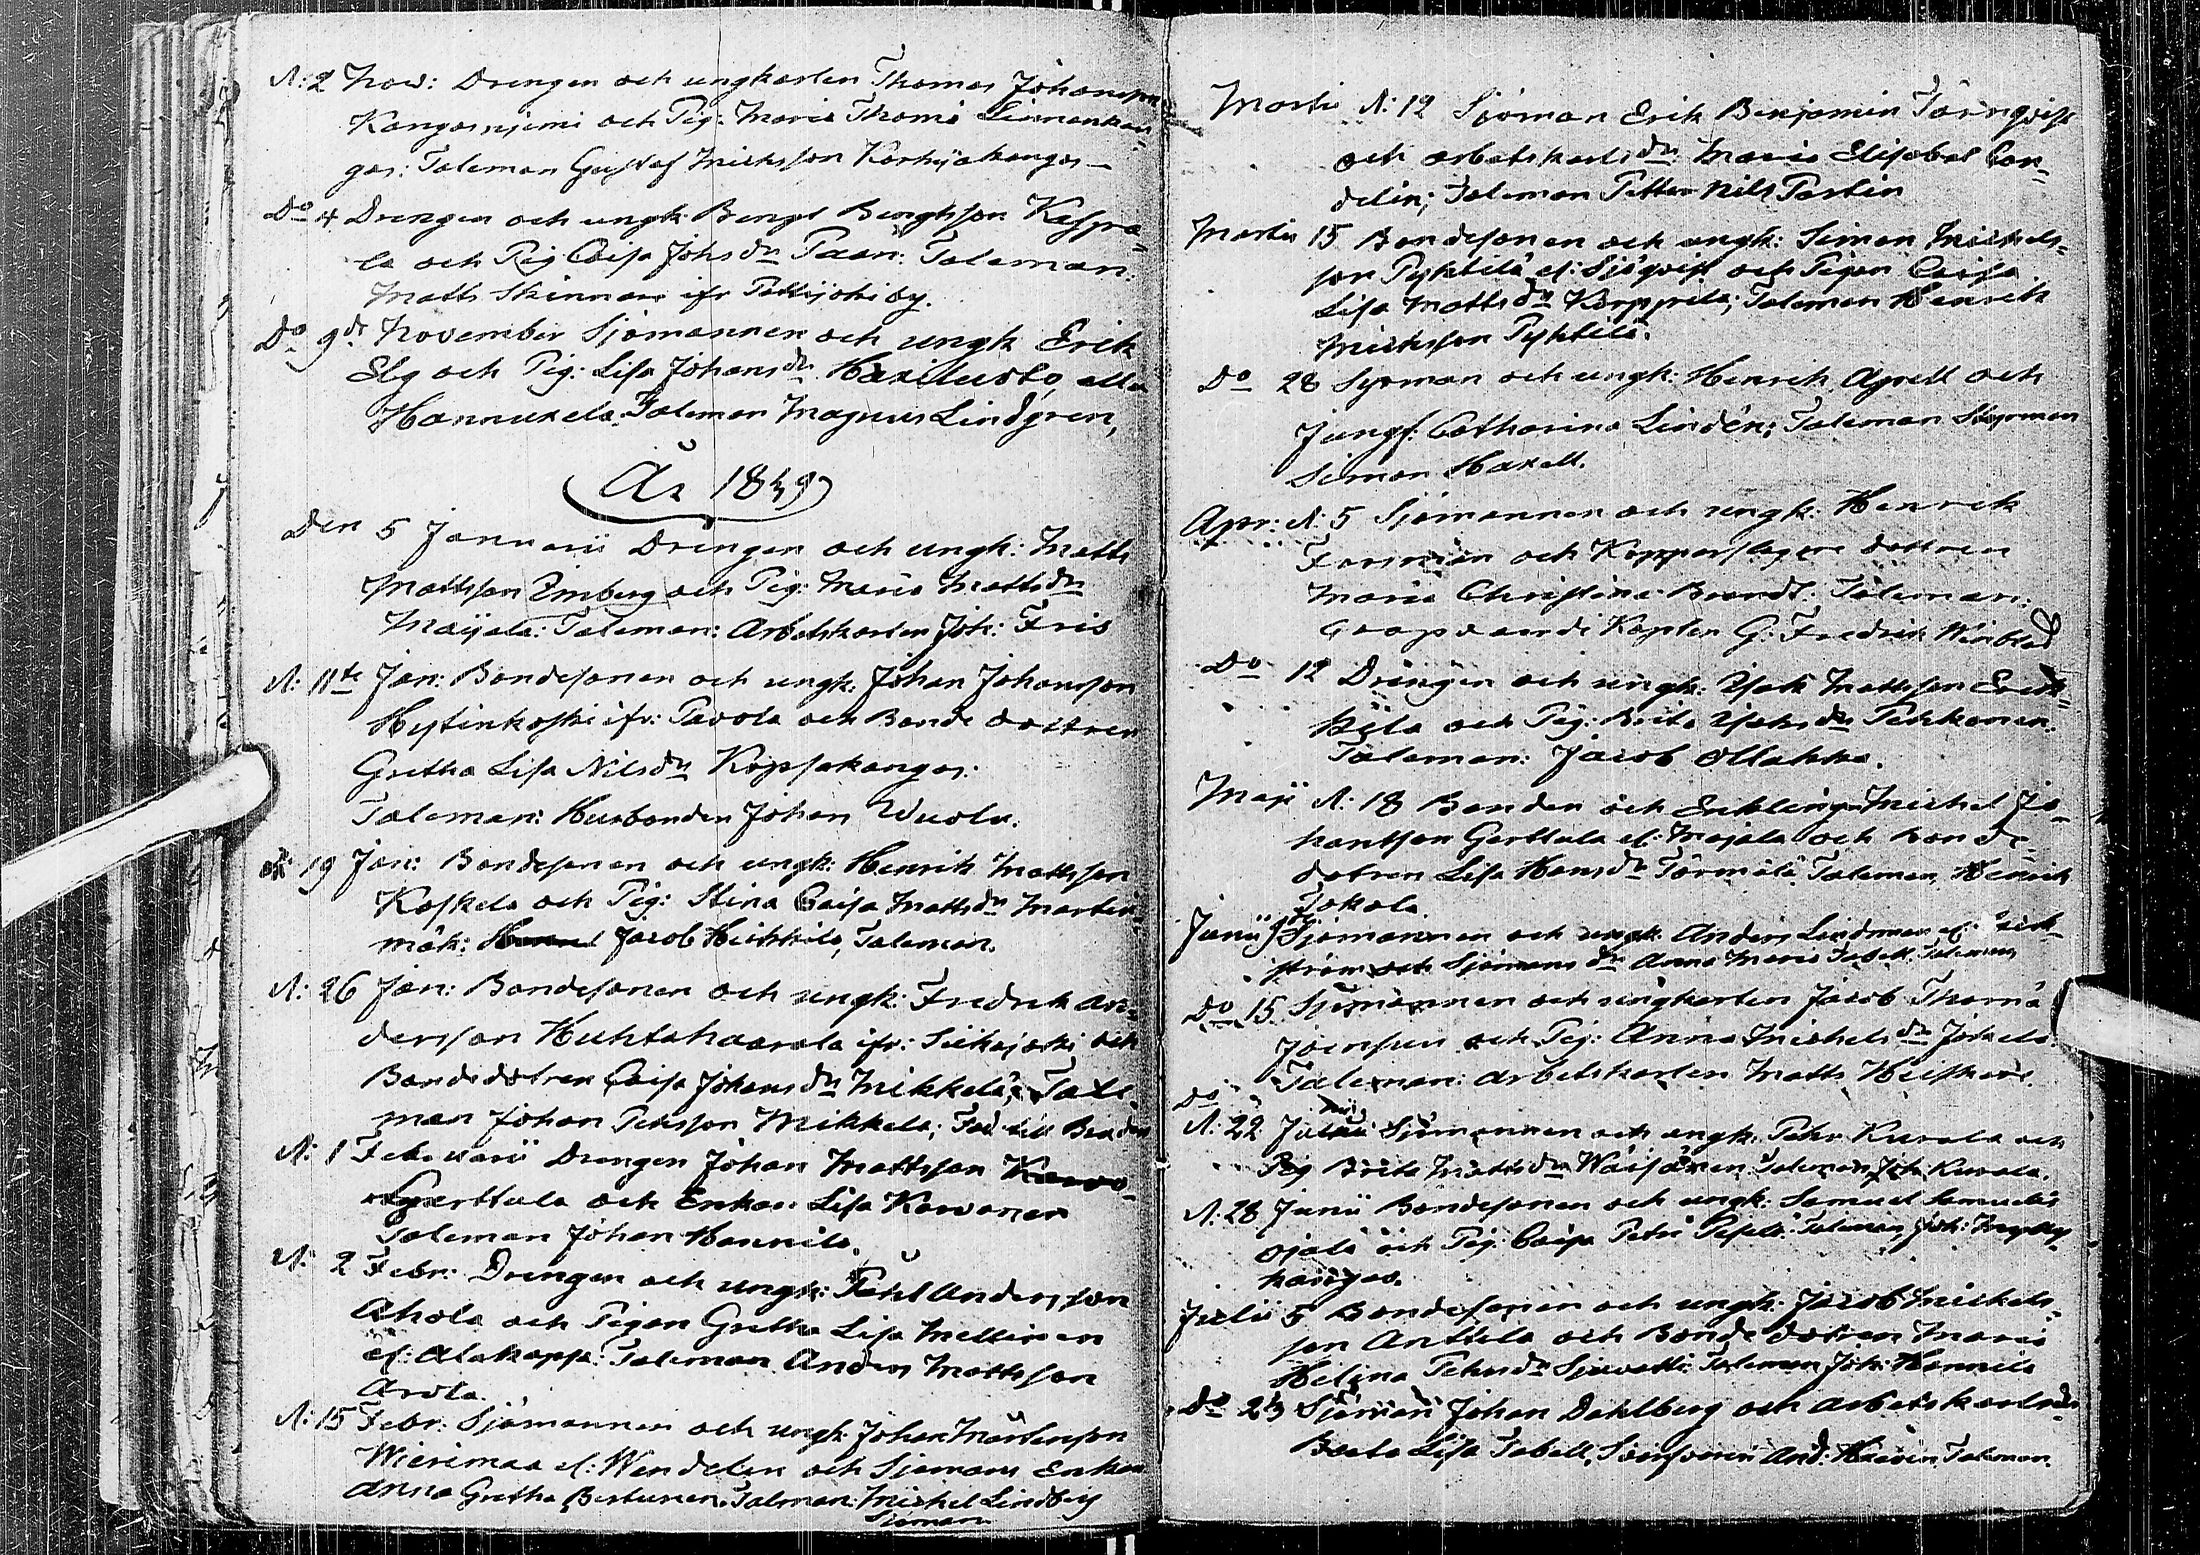 N: 2 Nov: Drengen och ungkarlen Thomas Johansson
Kangasniemi och Pig: Maria Thoms Linnankan-
gas: Taleman Gustaf Michsson Korkiakangas
Do 4 Drengen och ungk: Bengt Bengtsson Kasspa-
la och Pig Caisa Johsdr Paan: Taleman
Matts Skinnari ifr Pattijoki by.
Do 9de November Sjömannen och ungk Erik
Elg och Pig: Lisa Johansdr eller
Hannuxela Taleman Magnus Lindgren,
År 1849
Den 5 Januarii Drengen och ungk: Matts
Mattsson Emberg och Pig: Maria Mattsdr
Maijala: Taleman: Arbetskarlen Joh: Fris
N: 11te Jan: Bondesonen och ungk: Johan Johansson
Hyttinkoski ifr: Pavola och Bonde dottren
Gretha Lisa Nilsdr Kopsakangas:
Taleman: Husbonden Johan Wuolu.
19 Jan: Bondesonen och ungk: Henrik Mattsson
Koskela och Pig: Stina Caisa Mattsdr Martin-
mäk: Jacob Heikkilä, Taleman.
N: 26 Jan: Bondesonen och ungk: Fredrik An-
dersson Huhtahaarala ifr: Siikajoki och
Bondedotren Caisa Johansdr Mikkelä, Tale
man Johan Pehrsson Mikkela; Fad till Bruden
N: 1 Februarii Drengen Johan Mattsson
Gerttula och Enkan Lisa Karvonen
Taleman Johan Hannila.
N: 2 Febr: Drengen och ungk: Pehl Andersson
Ahola och Pigan Gretha Lisa Mellinen
el: Alakopsa: Taleman Anders Mattsson
Arola.
N: 15 Febr: Sjömannen och ungk Johan Mårtensson
Wierimaa el: Wendelin och Sjömans Enkan
Anna Gretha Taleman: Michel Lindberg
Sjöman
Martii N: 12 Sjöman Erik Benjamin Törnqvist
och arbetskarlsdr: Maria Elisabet Can-
delin; Taleman Petter Nils Pastin
Martii 15 Bondesonen och ungk: Simon Michels-
son Pyhtilä el: Sjöqvist och Pigan Caisa
Lisa Mattsdr Korppila; Taleman Henrik
Michsson Pyhtilä.
Do 28 Sjöman och ungk: Henrik Agrell och
Jungf: Catharina Lindén; Taleman Styrman
Simon Haxell.
Apr: N: 5 Sjömannen och ungk: Henrik
Forsman och Kopparslagare dottren
Maria Christina Brandt: Taleman:
Kapten G: Fredrik Winblad
Do 12 Drängen och ungk: Isak Mattsson Erik-
kilä och Pig: Brita Isaksdr Pehkonen:
Taleman: Jacob Ollakka.
Maji N: 18 Bonden och Enklingn Michel Jo-
hansson Gerttula el: Majala och Bonde-
dotren Lisa Hansdr Törmälä Taleman Henrik
Jokela.
Junii Sjömannen och ungk: Anders Lindman el:
ström och Sjömansdr Anna Maria Tabell Taleman
Do 15 Sjömannen och ungkarlen Jacob Thoma
och Pig: Anna Michelsdr Jokela
Taleman: arbetskarlen Matts Heiskari.
Do
N: 22 Junii Sjömannen och ungk: Pehr Kurala och
Pig Brita Mattsdr Wäisänen Taleman Joh: Kurala.
N: 28 Junii Bondesonen och ungk: Samuel Samuels
Ojala och Pig: Caisa Petri Taleman Joh:
kangas.
Julii 5 Bondesonen och ungk: Jacob Michels-
son Anttila och Bonde dotren Maria
Helena Pehrsdr Taleman Joh: Hannila
Do 23 Sjöman Johan Dahlberg och arbetskarlsdr
Beata Lisa Tabell, And: Taleman.